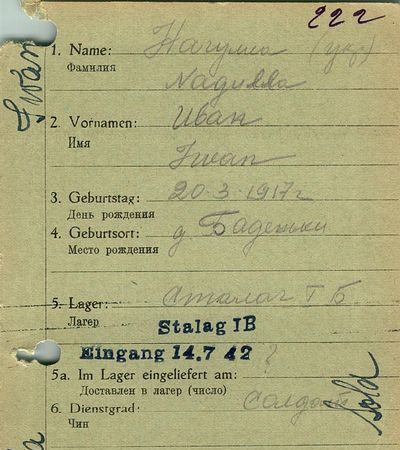 222
Iwan
1. Name: (укр)
Фамилия
2. Vornamen: Иван
Имя
Iwan
3. Geburtstag: 20.3.1917г
День рождения
4. Geburtsort: д.
Место рождения
5. Lager: Сталаг I Б
Лагер
Stalag IB
Eingang 14.7 42 ?
5a. Im Lager eingeliefert am:
Доставлен в лагер (число)
6. Dienstgrad: Солдат
Чин
Sold